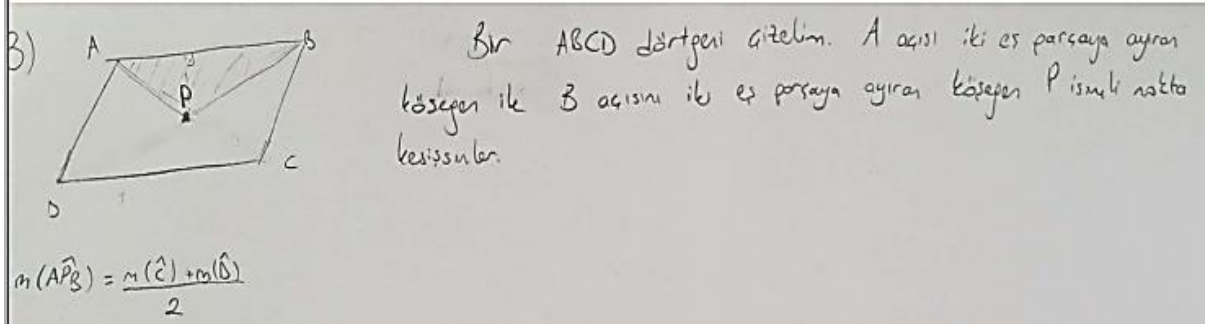 B)
A
B
P
C
D
Bir ABCD dörtgeni çizelim. A açısı iki eş parçaya ayıran
köşegen ile B açısını iki eş parçaya ayıran köşegen P isimli nokta
kesişsinler.
m(APB) = m(Ĉ)+m(D̂)
2